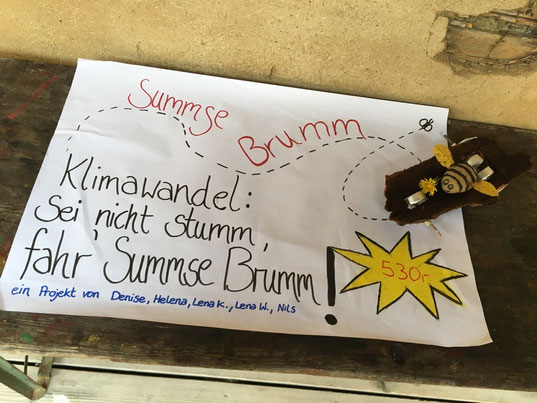 Summse
Brumm
Klimawandel:
Sei nicht stumm,
fahr Summse Brumm!
ein Projekt von Denise, Helena, Lena K., Lena W., Nils
530,-